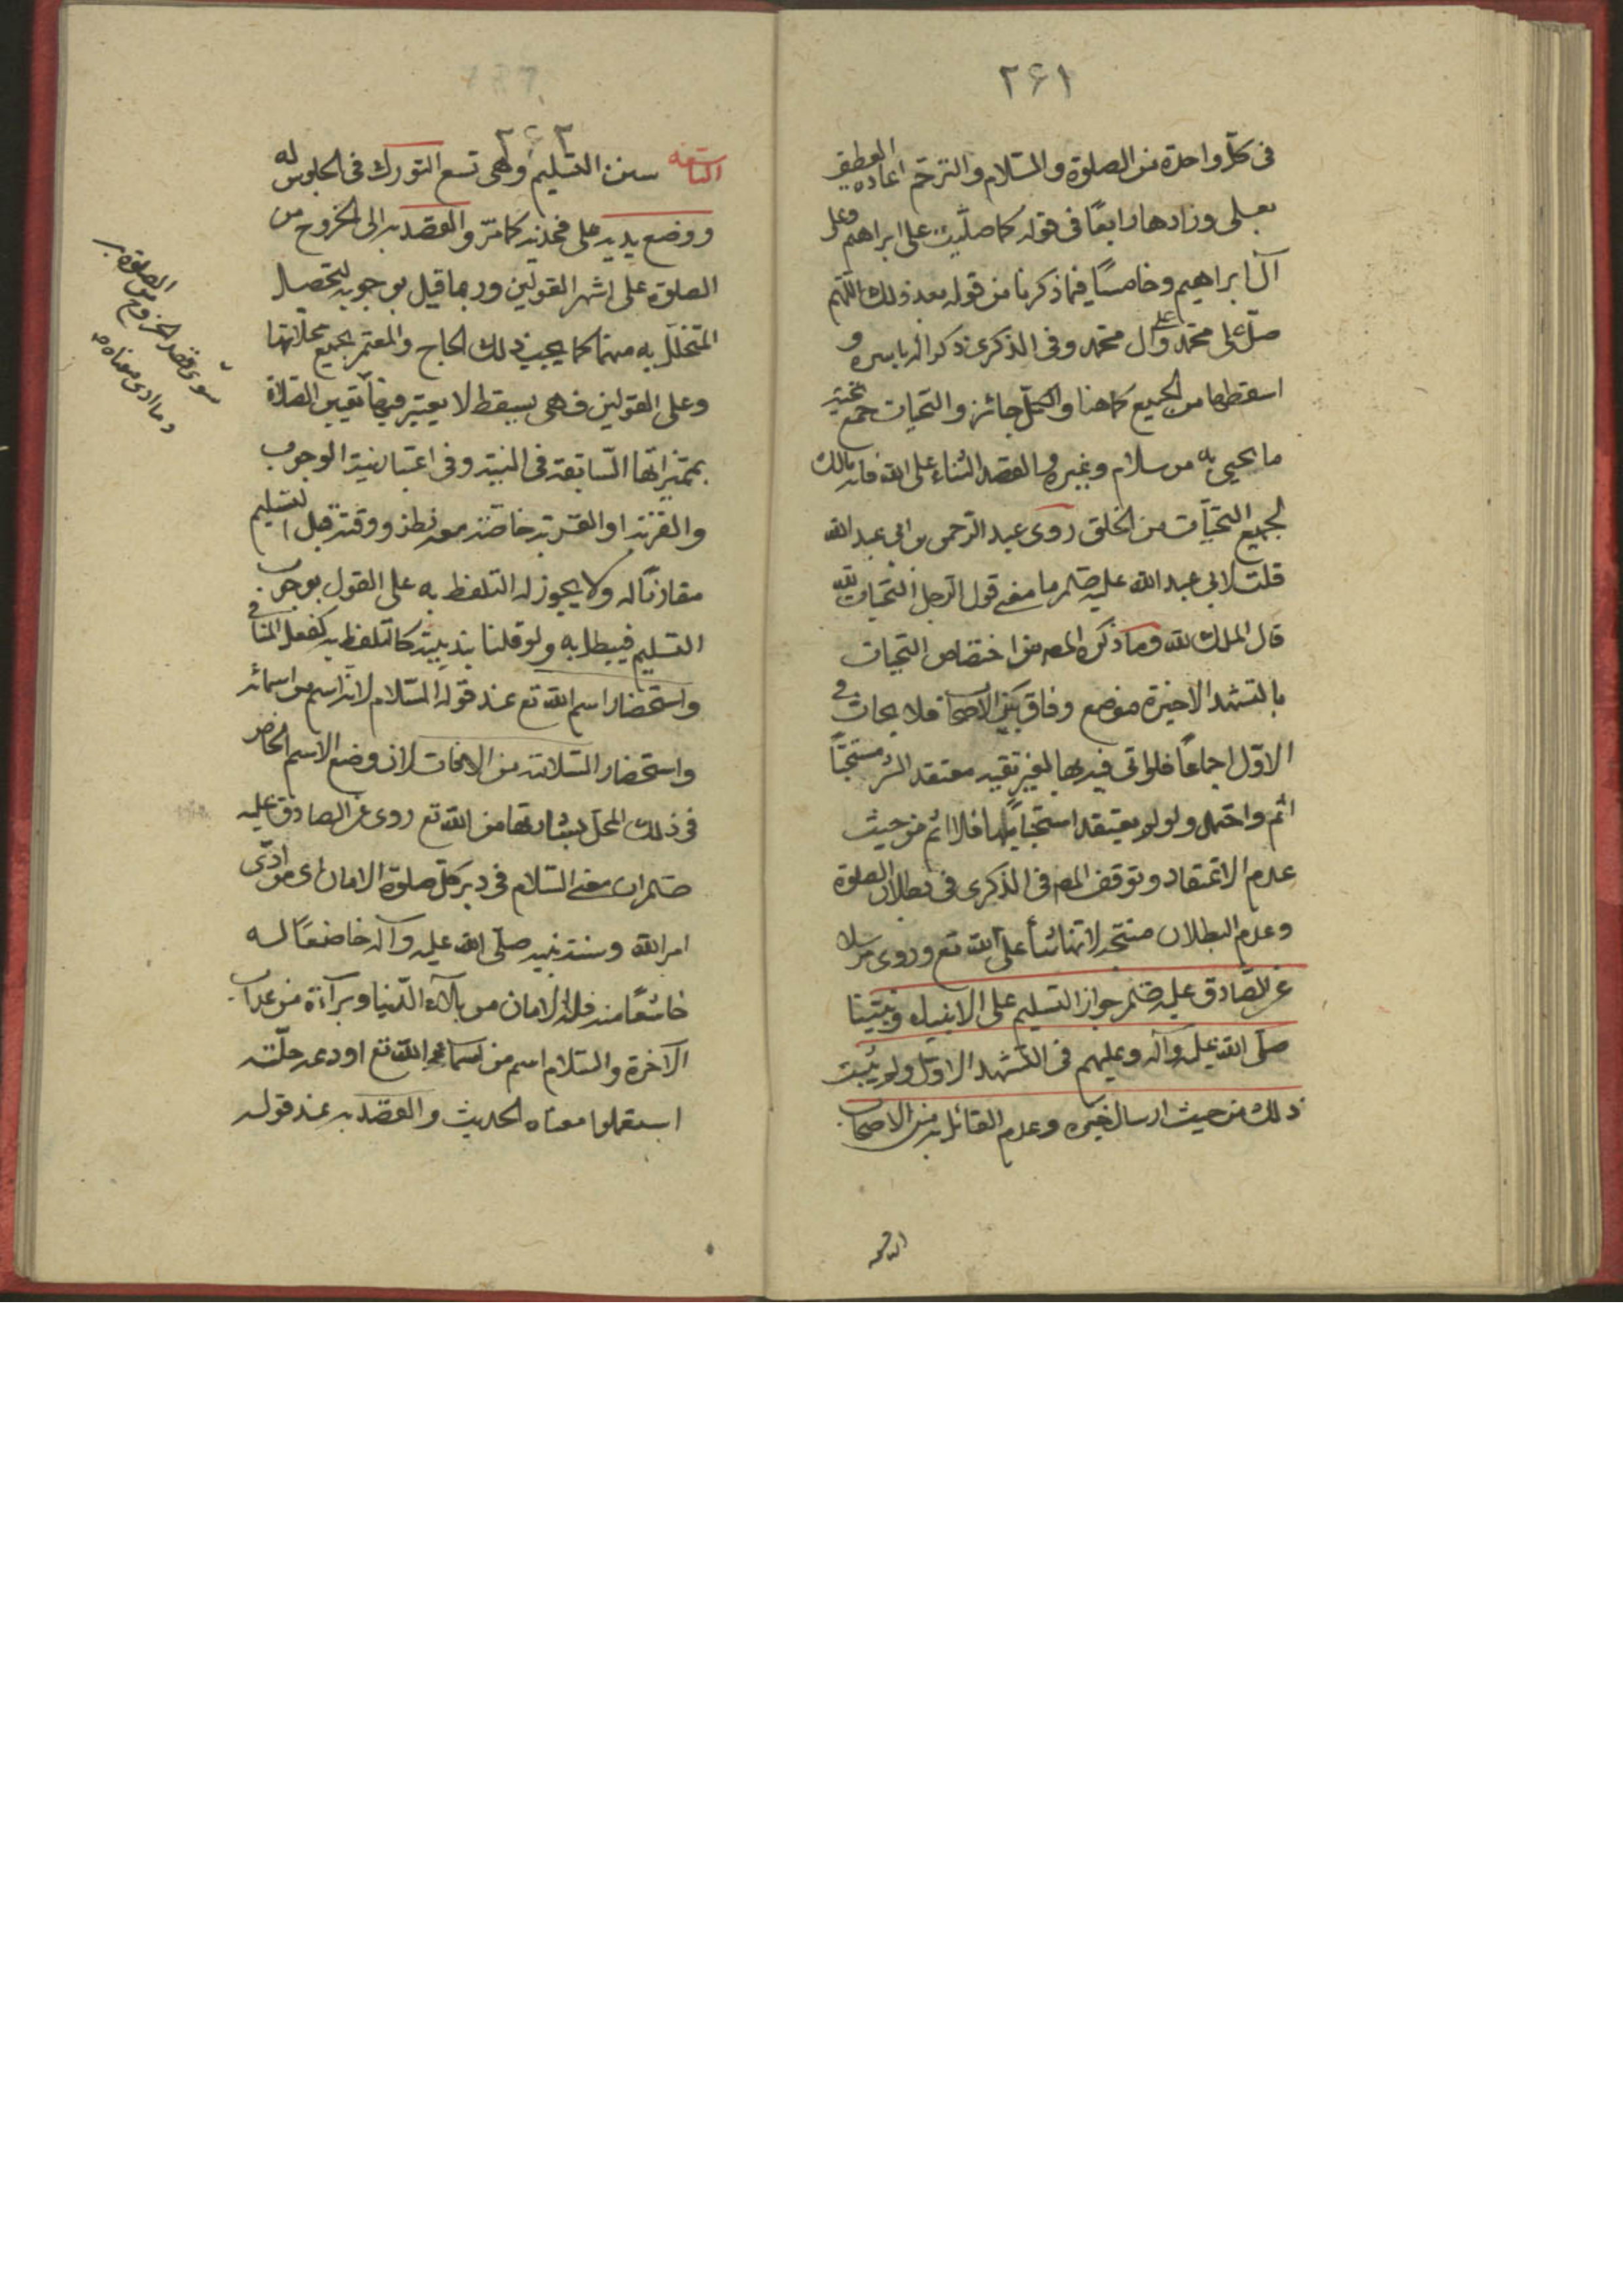 ٢٦١
فى كلّ واحدة من الصلوة والسّلام والترحّم اعاده العطف
بعلى وزادها رابعًا فى قوله كما صلّيت على ابراهيم وعلى
آل ابراهيم وخامسًا فيما ذكرنا من قوله بعد ذلك اللّهم
صلّ على محمّد وعلى آل محمّد وفى الذكرى ذكر الرباسره و
اسقطها من الجميع كما هنا والكلّ جائز والتحيات جمع تحيّة
ما يحيى به من سلام وغيره والقصد الثناء على الله فانه مالك
لجميع التحيّات من الخلق روى عبد الرّحمن بن ابى عبد الله
قلت لابى عبد الله عليه ما معنى قول الرجل التحيات لله
قال الملك لله وما ذكره المص من اختصاص التحيات
بالتشهد الاخيرة موضع وفاق بين الاصحاب فلا تحيات فى
الاوّل اجماعًا فلو اتى فيه بها لغير تقية معتقد الشر مستحبًّا
اثم واحتمل ولو لم يعتقد استحبابها فلا اثم من حيث
عدم الاعتقاد وتوقف المص فى الذكرى فى بطلان الصلوة
وعدم البطلان متجه لانها ثناء على الله تع وروى مرسلا
عن الصّادق عليه جواز التسليم على الانبياء ونبيّنا
صلّى الله عليه وآله وعليهم فى التشهد الاوّل ولم يثبت
ذلك من حيث ارسال خبره وعدم القائل به من الاصحاب
٢٦٢
التاسعه سنن التسليم وهى تسع التورك فى الجلوس له
ووضع يديه على فخذيه كما مرّ والقصد به الى الخروج من
الصلوة على اشهر القولين وربما قيل بوجوبه لتحصيل
المتحلّل به منها كما يجب ذلك الحاج والمعتمر بجميع محلّلاتها
وعلى القولين فهى بسيطة لا يعتبر فيها تعيين الصلاة
بمميّزاتها السّابقة فى النية وفى اعتبار نية الوجوب
والقربة او القربة خاصّة نظر ووقته قبل التسليم
مقارنًا له ولا يجوز له التلفظ به على القول بوجوب
التسليم فيبطل به ولو قلنا بندبيته كان تلفظه به كفعل المنافى
واستحضار اسم الله تع عند قوله السّلام لانه اسم من اسمائه
واستحضار السّلامة من الافات لان وضع الاسم الخاص
فى ذلك المحل بشارتها من الله تع روى عن الصادق عليه
ان معنى السّلام فى دبر كلّ صلوة الامان اى من ادّى
امر الله وسنة نبيه صلّى الله عليه وآله خاضعًا له
خاشعًا منه فله الامان من بلاء الدّنيا وبراءة من عذاب
الآخرة والسّلام اسم من اسماء الله تع اودعه خلقه
استعملوا معناه الحديث والقصد به عند قوله
سوى قصد الخروج من الصلوة به